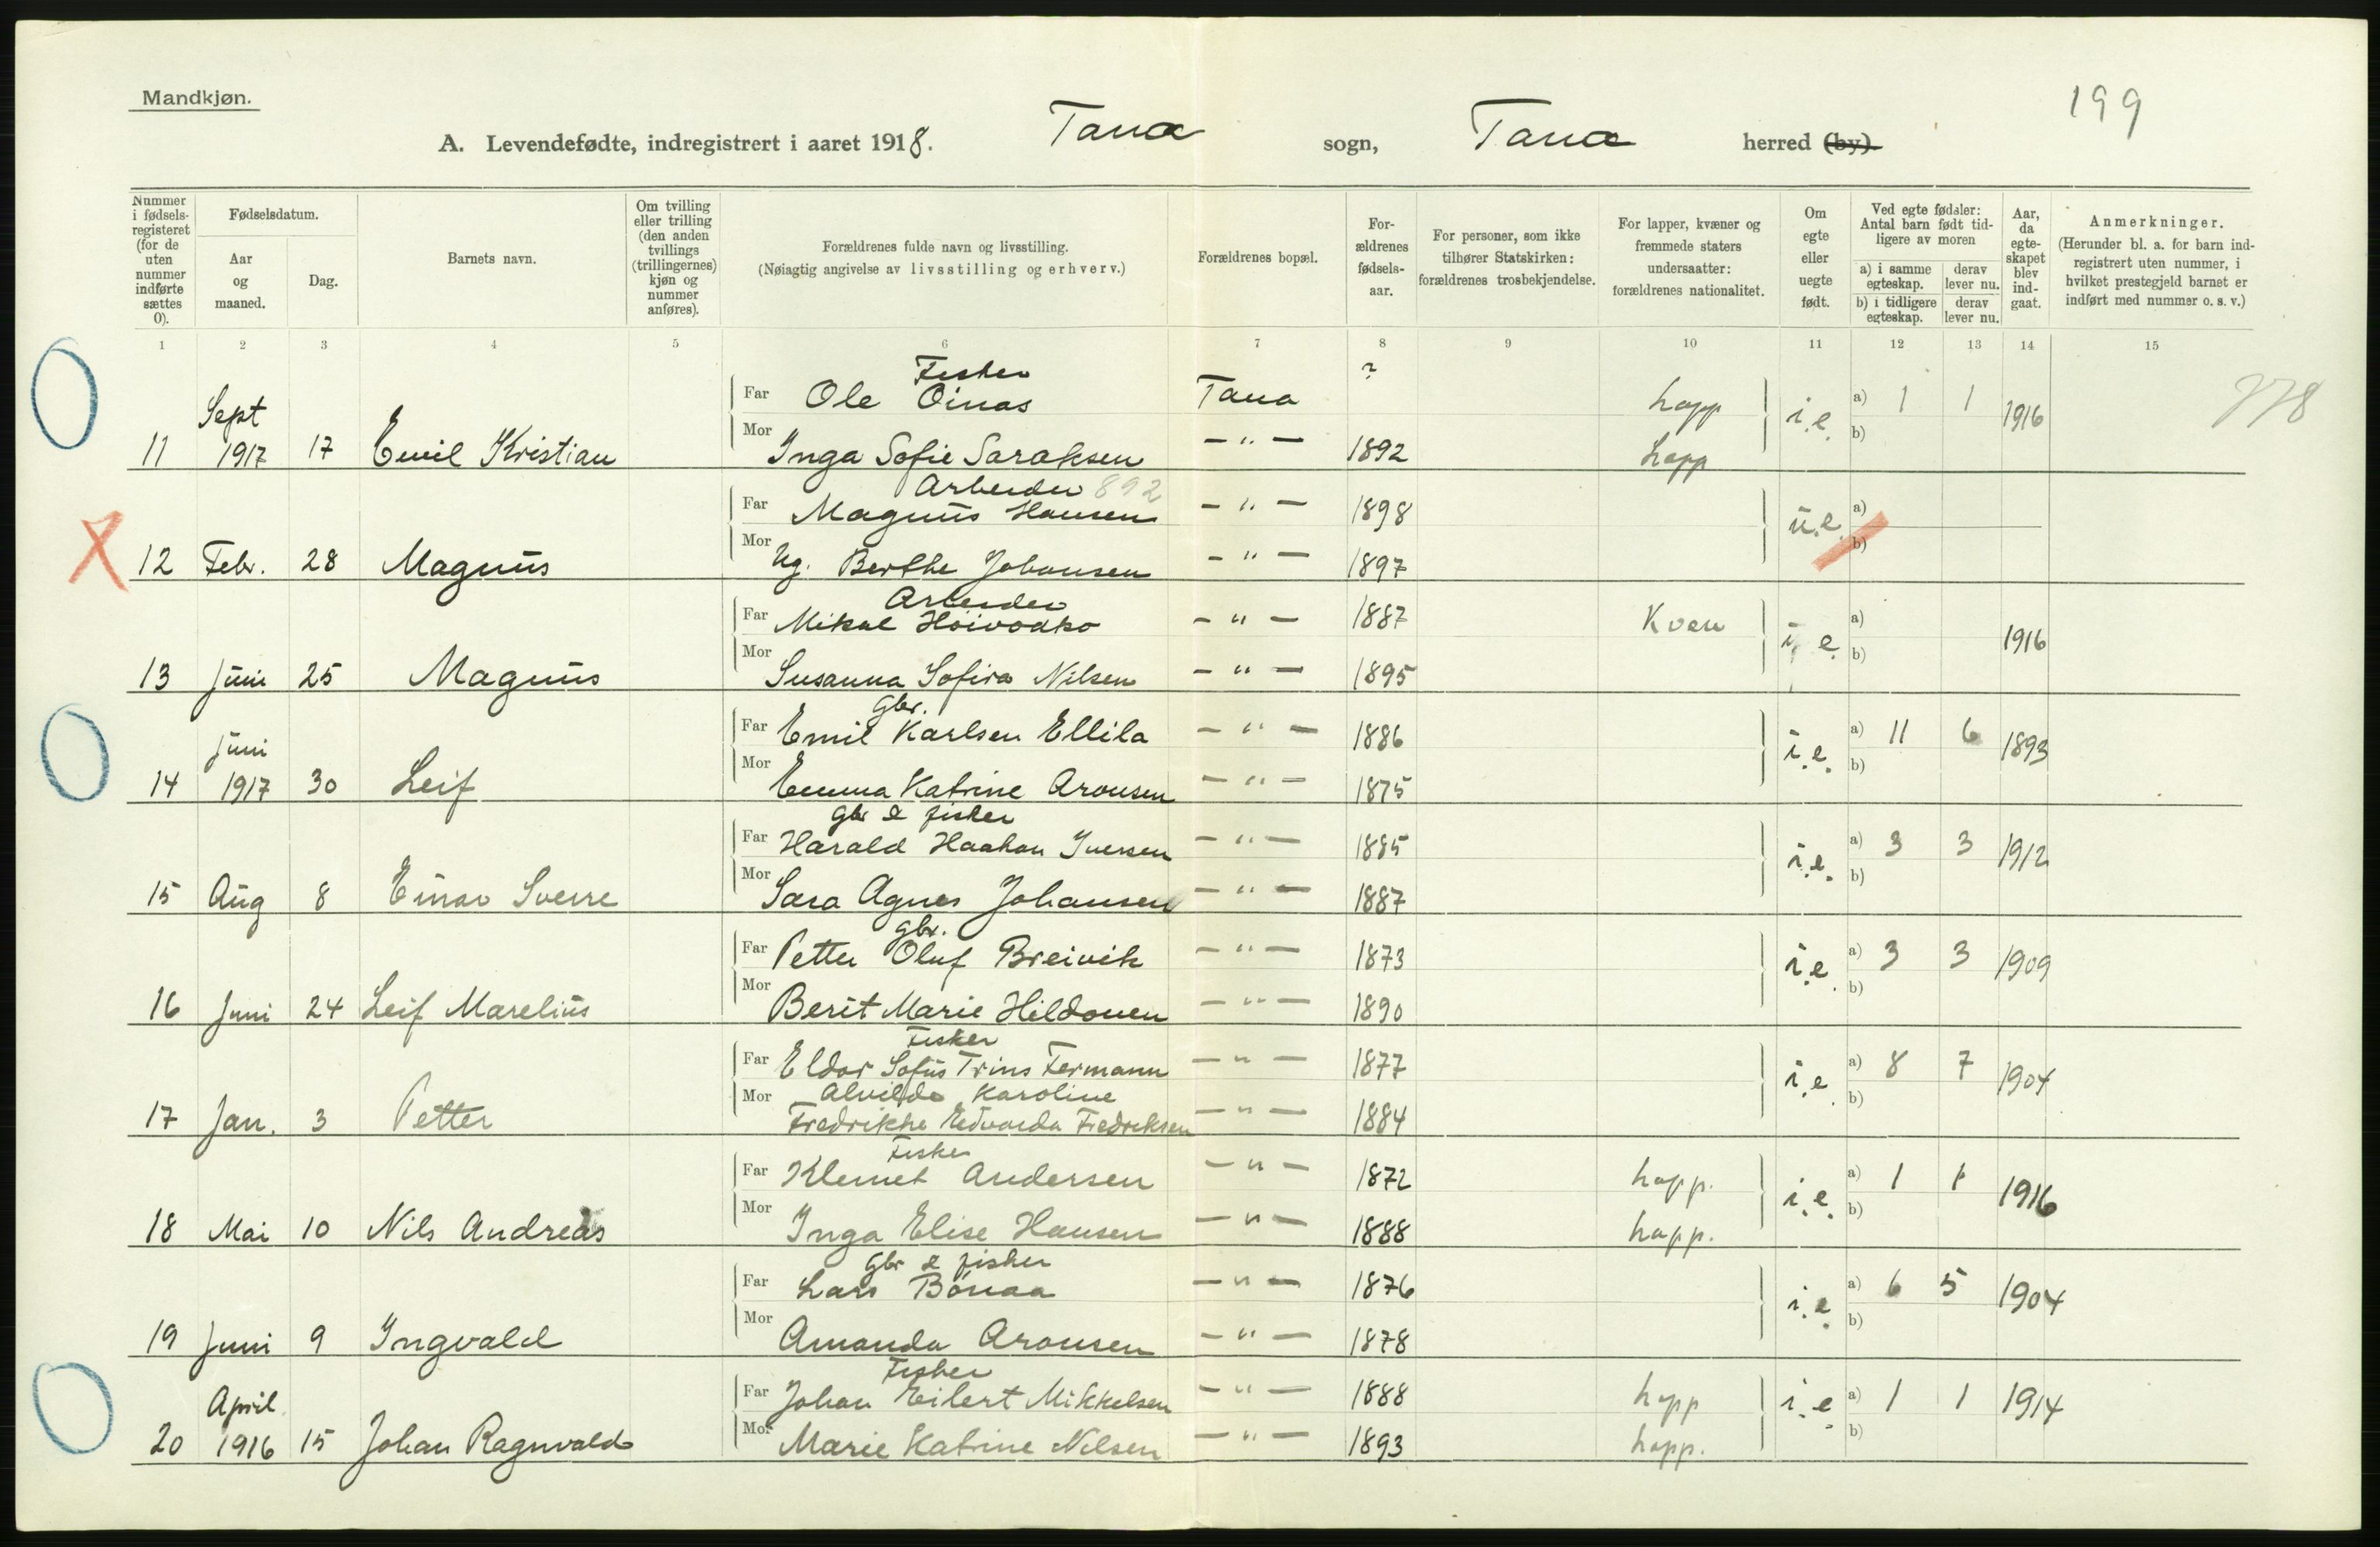 Mandkjøn.
199
A. Levendefødte, indregistrert i aaret 1918. Tana sogn, Tana herred (by).
Nummer i fødsels-registeret (for de uten nummer indførte sættes 0).
Fødselsdatum.
Aar og maaned.
Dag.
Barnets navn.
Om tvilling eller trilling (den anden tvillings (trillingernes) kjøn og nummer anføres).
Forældrenes fulde navn og livsstilling.
(Nøiagtig angivelse av livsstilling og erhverv.)
Forældrenes bopæl.
For-ældrenes fødsels-aar.
For personer, som ikke tilhører Statskirken: forældrenes trosbekjendelse.
For lapper, kvæner og fremmede staters undersaatter: forældrenes nationalitet.
Om egte eller uegte født.
Ved egte fødsler: Antal barn født tid-ligere av moren
a) i samme egteskap.
derav lever nu.
b) i tidligere egteskap.
derav lever nu.
Aar, da egte-skapet blev ind-gaat.
Anmerkninger.
(Herunder bl. a. for barn ind-registrert uten nummer, i hvilket prestegjeld barnet er indført med nummer o. s. v.)
1 2 3 4 5 6 7 8 9 10 11 12 13 14 15
Fisker ?
Sept Far Ole Oinas Tana Lapp i.e. a) 1 1 1916 778
11 1917 17 Emil Kristian Mor Inga Sofie Saraksen — " — 1892 Lapp b)
Arbeider 892
Far Magnus Hansen — " — 1898 u.e. a)
12 Febr. 28 Magnus Mor Ug. Berthe Johansen — " — 1897 b)
Arbeider
Far Mikal — " — 1887 Kven e. a) 1916
13 Juni 25 Magnus Mor Susanna Sofira Nilsen — " — 1895 b)
Gbr.
Juni Far Emil Karlsen Ellila — " — 1886 i.e. a) 11 6 1893
14 1917 30 Leif Mor Emma Katrine Aronsen — " — 1875 b)
Gbr & fisker
Far Harald Haakon Iversen — " — 1885 i.e. a) 3 3 1912
15 Aug 8 Einar Sverre Mor Sara Agnes Johansen — " — 1887 b)
Gbr.
Far Petter Oluf Breivik — " — 1873 i.e. a) 3 3 1909
16 Juni 24 Leif Marelius Mor Berit Marie Hildonen — " — 1890 b)
Fisker
Far Eldor Sofus Trins Fermann — " — 1877 i.e. a) 8 7 1904
Mor Alvilde Karoline
17 Jan. 3 Petter Fredrikke Edvarda Fredriksen — " — 1884 b)
Fisker
Far Klemet Andersen — " — 1872 Lapp. i.e. a) 1 1 1916
18 Mai 10 Nils Andreas Mor Inga Elise Hansen — " — 1888 Lapp. b)
Gbr & fisker
Far Lars Bönaa — " — 1876 i.e. a) 6 5 1904
19 Juni 9 Ingvald Mor Amanda Aronsen — " — 1878 b)
Fisker
April Far Johan Eilert Mikkelsen — " — 1888 Lapp i.e. a) 1 1 1914
20 1916 15 Johan Ragnvald Mor Marie Katrine Nilsen — " — 1893 Lapp. b)